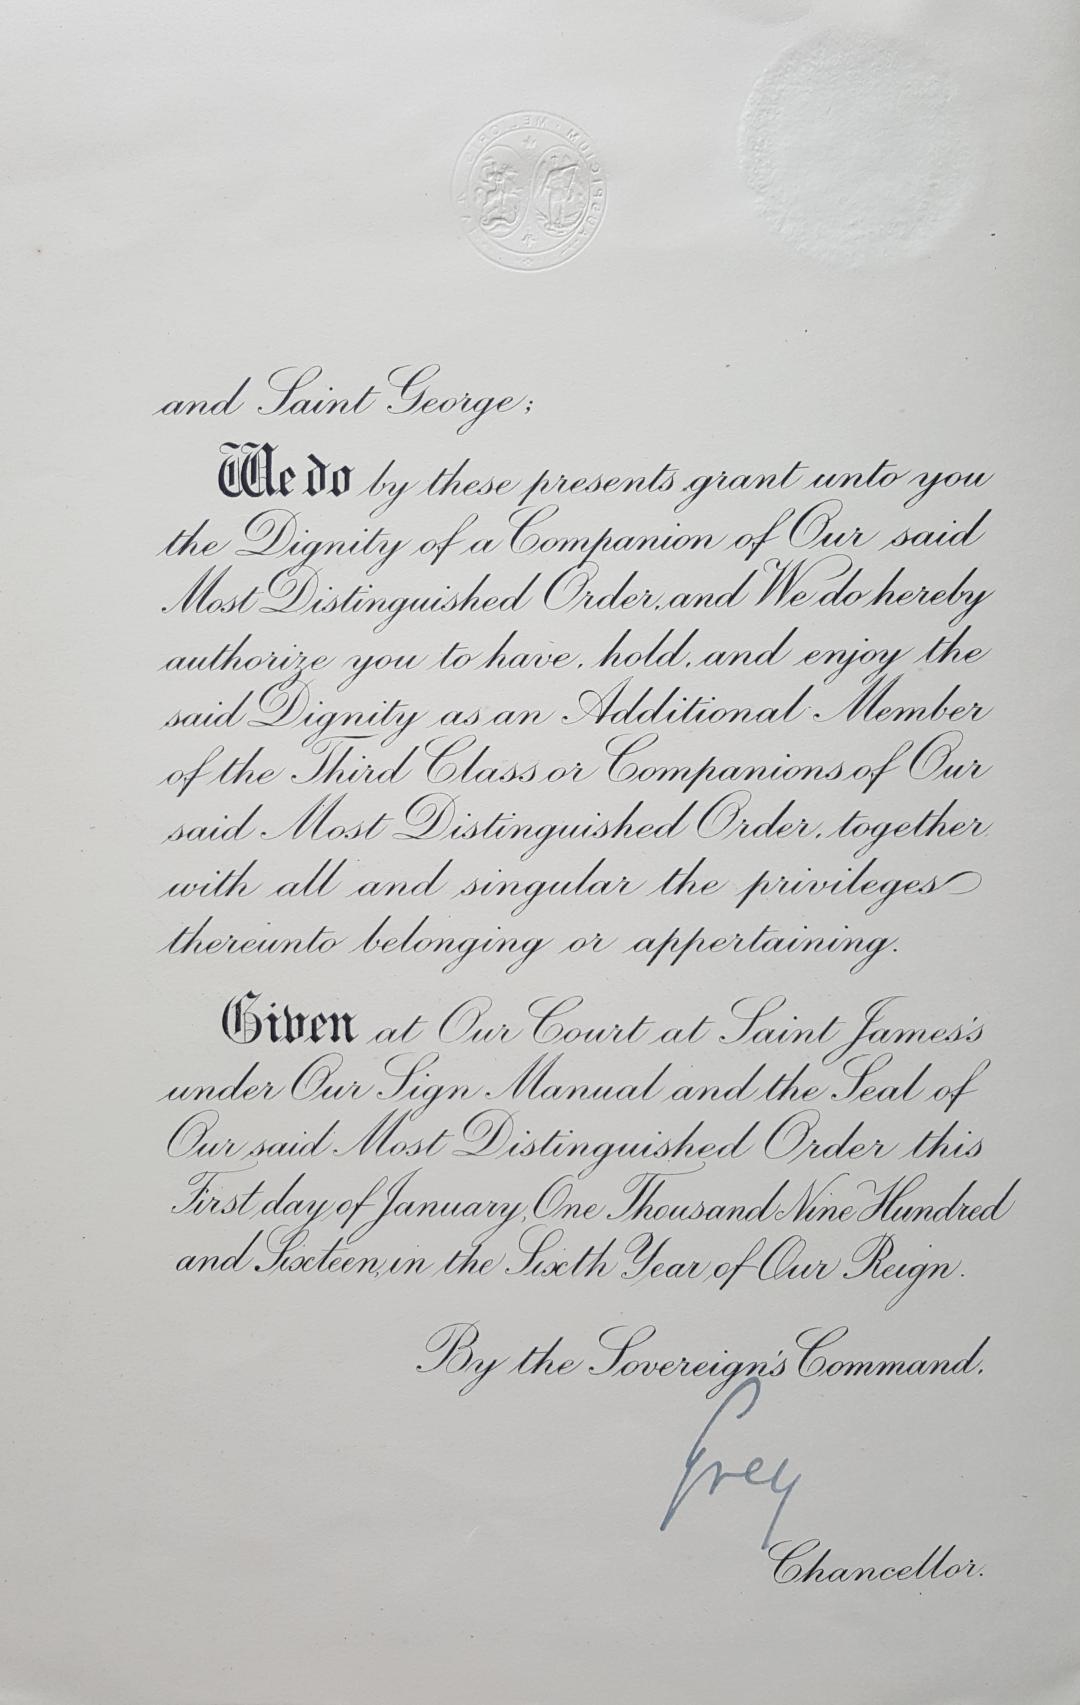 and Saint George;
We do by these presents grant unto you
the Dignity of a Companion of Our said
Most Distinguished Order, and We do hereby
authorize you to have, hold, and enjoy the
said Dignity as an Additional Member
of the Third Class or Companions of Our
said Most Distinguished Order, together
with all and singular the privileges
thereunto belonging or appertaining.
Given at Our Court at Saint James's
under Our Sign Manual and the Seal of
Our said Most Distinguished Order this
First day of January, One Thousand Nine Hundred
and Sixteen, in the Sixth Year of Our Reign.
By the Sovereign's Command.
Grey
Chancellor.